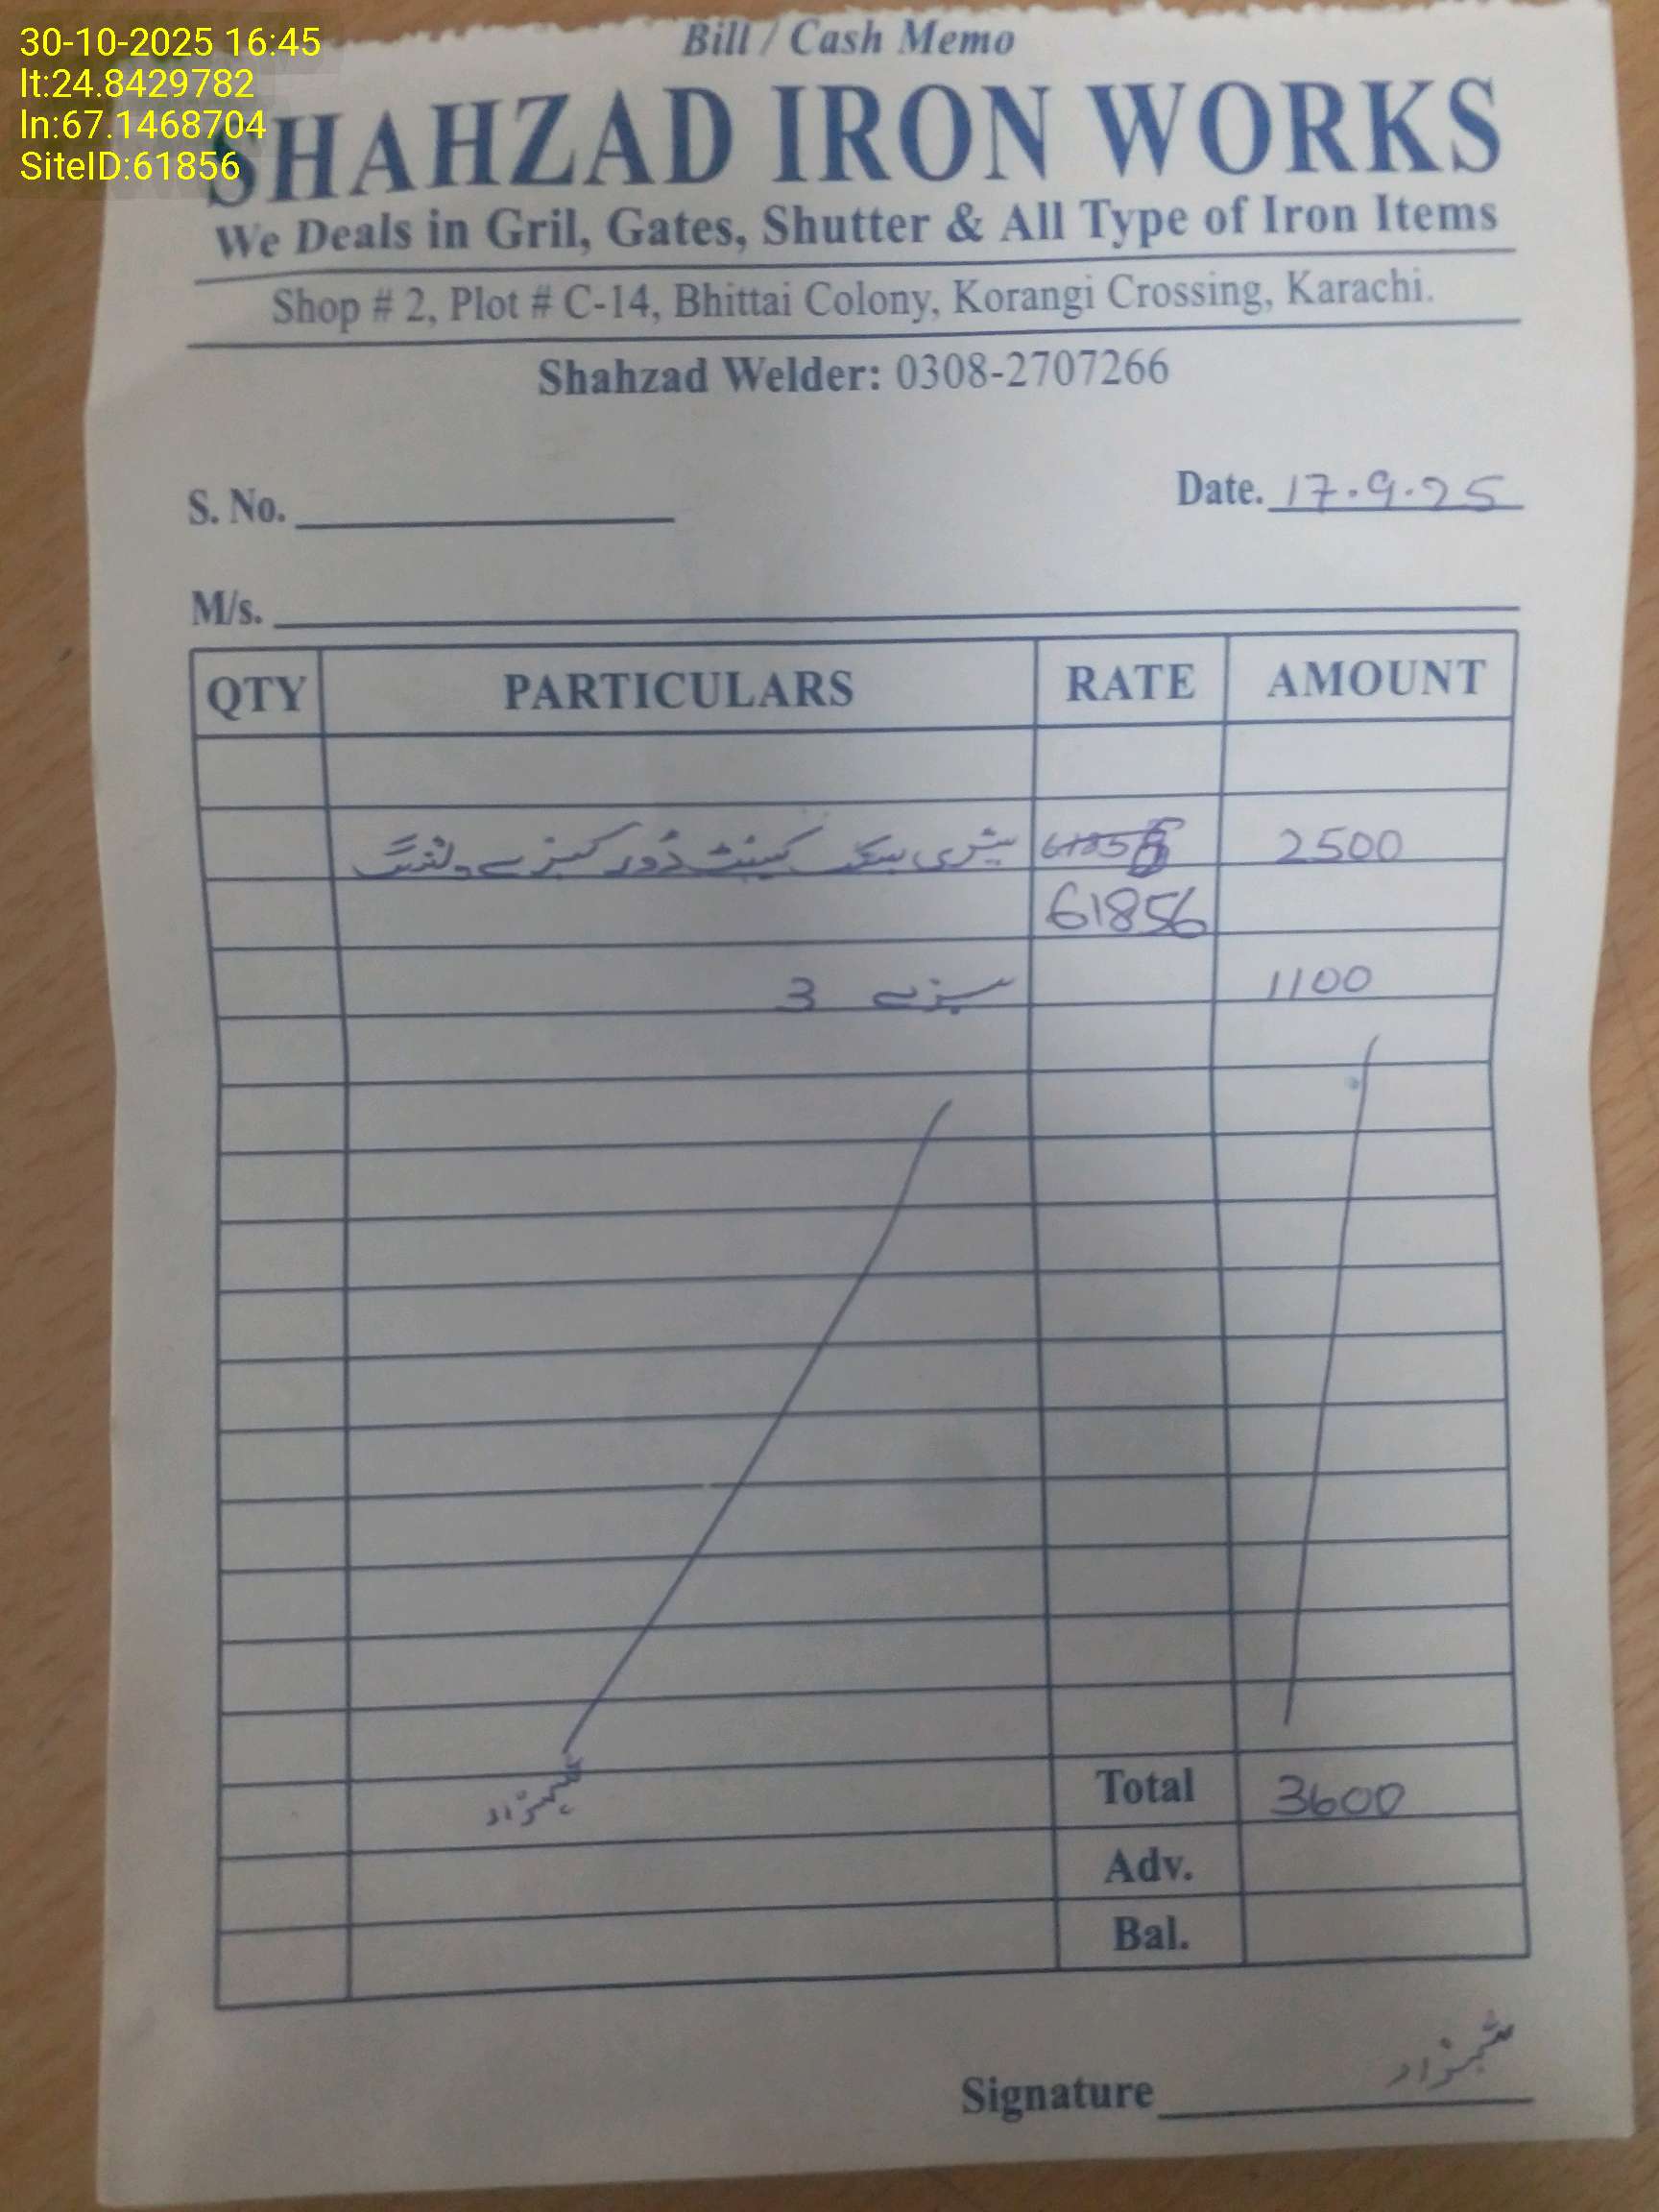 30-10-2025 16:45
lt:24.8429782
ln:67.1468704
SiteID:61856
Bill / Cash Memo
SHAHZAD IRON WORKS
We Deals in Gril, Gates, Shutter & All Type of Iron Items
Shop # 2, Plot # C-14, Bhittai Colony, Korangi Crossing, Karachi.
Shahzad Welder: 0308-2707266
S. No. Date. 17.9.25
M/s.
QTY PARTICULARS RATE AMOUNT
کیبنٹ ڈور کبزے ولڈنگ 2500
61856
3 1100
شہزاد
Total 3600
Adv.
Bal.
Signature شہزاد